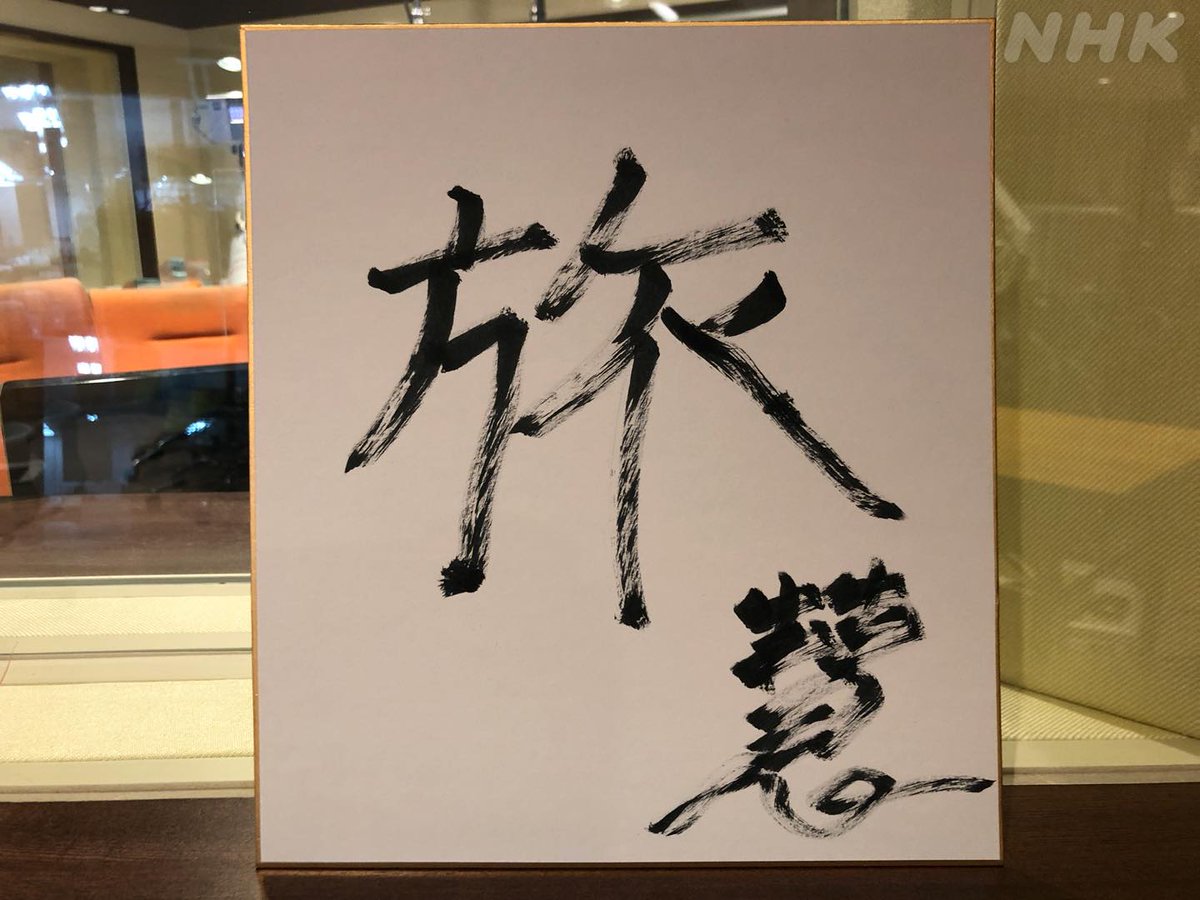 NHK
旅